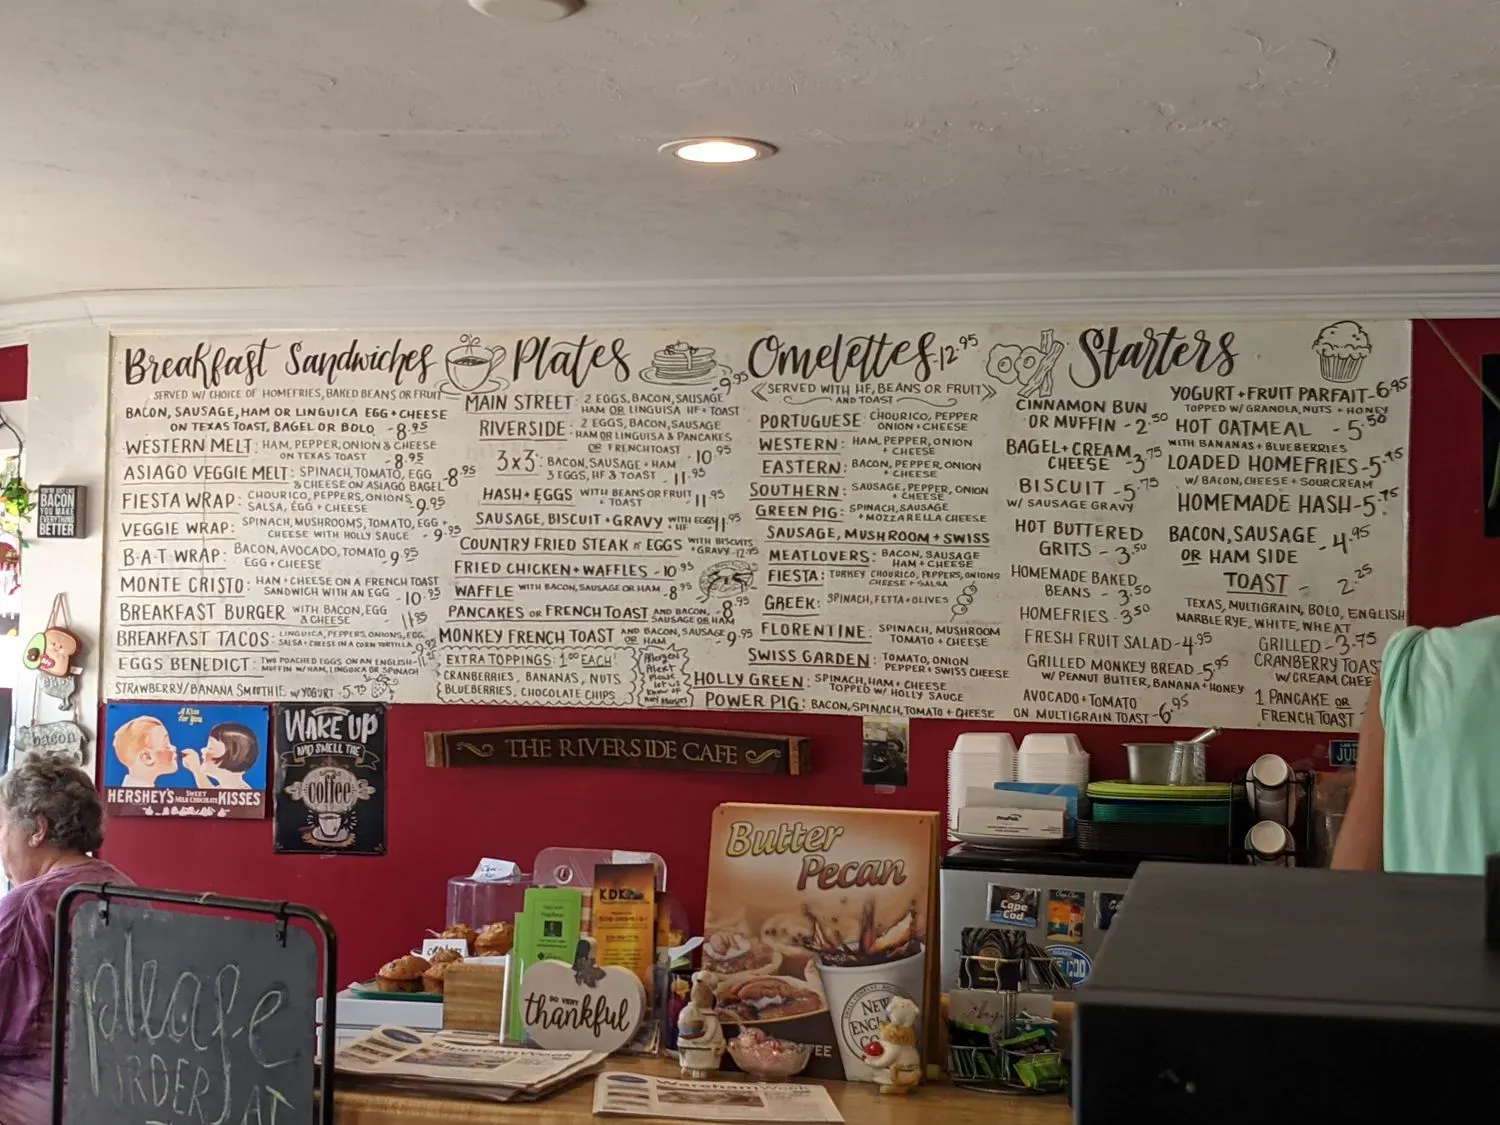 Breakfast Sandwiches
SERVED W/ CHOICE OF HOMEFRIES, BAKED BEANS OR FRUIT
BACON, SAUSAGE, HAM OR LINGUICA EGG + CHEESE
ON TEXAS TOAST, BAGEL OR BOLO - 8.95
WESTERN MELT: HAM, PEPPER, ONION & CHEESE
ON TEXAS TOAST - 8.95
ASIAGO VEGGIE MELT: SPINACH, TOMATO, EGG
& CHEESE ON ASIAGO BAGEL - 8.95
FIESTA WRAP: CHOURICO, PEPPERS, ONIONS
SALSA, EGG + CHEESE - 9.95
VEGGIE WRAP: SPINACH, MUSHROOMS, TOMATO, EGG +
CHEESE WITH HOLLY SAUCE - 9.95
B-A-T WRAP: BACON, AVOCADO, TOMATO
EGG + CHEESE 9.95
MONTE CRISTO: HAM + CHEESE ON A FRENCH TOAST
SANDWICH WITH AN EGG - 10.95
BREAKFAST BURGER WITH BACON, EGG
& CHEESE - 11.95
BREAKFAST TACOS: LINGUICA, PEPPERS, ONIONS, EGG,
SALSA + CHEESE IN A CORN TORTILLA 9.95
EGGS BENEDICT: TWO POACHED EGGS ON AN ENGLISH
MUFFIN W/ HAM, LINGUICA OR SPINACH
STRAWBERRY/BANANA SMOOTHIE W/ YOGURT - 5.75
Plates
MAIN STREET: 2 EGGS, BACON, SAUSAGE - 9.95
HAM OR LINGUISA HF + TOAST
RIVERSIDE: 2 EGGS, BACON, SAUSAGE
HAM OR LINGUISA & PANCAKES
OR FRENCH TOAST - 10.95
3x3: BACON, SAUSAGE + HAM
3 EGGS, HF & TOAST - 11.95
HASH + EGGS WITH BEANS OR FRUIT
+ TOAST 11.95
SAUSAGE, BISCUIT + GRAVY WITH EGGS
+ HF - 11.95
COUNTRY FRIED STEAK n' EGGS WITH BISCUITS
+ GRAVY - 12.95
FRIED CHICKEN + WAFFLES - 10.95
WAFFLE WITH BACON, SAUSAGE OR HAM - 8.95
PANCAKES OR FRENCH TOAST AND BACON,
SAUSAGE OR HAM - 8.95
MONKEY FRENCH TOAST AND BACON, SAUSAGE
OR HAM 9.95
EXTRA TOPPINGS: 1.00 EACH!
CRANBERRIES, BANANAS, NUTS
BLUEBERRIES, CHOCOLATE CHIPS
Allergen
Alert
Please
let us
know of
any
Omelettes - 12.95
SERVED WITH HF, BEANS OR FRUIT
AND TOAST
PORTUGUESE: CHOURICO, PEPPER
ONION + CHEESE
WESTERN: HAM, PEPPER, ONION
+ CHEESE
EASTERN: BACON, PEPPER, ONION
+ CHEESE
SOUTHERN: SAUSAGE, PEPPER, ONION
+ CHEESE
GREEN PIG: SPINACH, SAUSAGE
+ MOZZARELLA CHEESE
SAUSAGE, MUSHROOM + SWISS
MEATLOVERS: BACON, SAUSAGE
HAM + CHEESE
FIESTA: TURKEY CHOURICO, PEPPERS, ONIONS
CHEESE + SALSA
GREEK: SPINACH, FETTA + OLIVES
FLORENTINE: SPINACH, MUSHROOM
TOMATO + CHEESE
SWISS GARDEN: TOMATO, ONION
PEPPER + SWISS CHEESE
HOLLY GREEN: SPINACH, HAM + CHEESE
TOPPED W/ HOLLY SAUCE
POWER PIG: BACON, SPINACH, TOMATO + CHEESE
Starters
CINNAMON BUN
OR MUFFIN - 2.50
BAGEL + CREAM
CHEESE - 3.75
BISCUIT - 5.75
W/ SAUSAGE GRAVY
HOT BUTTERED
GRITS - 3.50
HOMEMADE BAKED
BEANS - 3.50
HOMEFRIES - 3.50
FRESH FRUIT SALAD - 4.95
GRILLED MONKEY BREAD - 5.95
W/ PEANUT BUTTER, BANANA + HONEY
AVOCADO + TOMATO
ON MULTIGRAIN TOAST - 6.95
YOGURT + FRUIT PARFAIT - 6.95
TOPPED W/ GRANOLA, NUTS + HONEY
HOT OATMEAL - 5.50
WITH BANANAS + BLUEBERRIES
LOADED HOMEFRIES - 5.75
W/ BACON, CHEESE + SOUR CREAM
HOMEMADE HASH - 5.75
BACON, SAUSAGE
OR HAM SIDE - 4.95
TOAST - 2.25
TEXAS, MULTIGRAIN, BOLO, ENGLISH
MARBLE RYE, WHITE, WHEAT
GRILLED - 3.75
CRANBERRY TOAST
W/ CREAM CHEE
1 PANCAKE OR
FRENCH TOAST
YOU'RE JUST LIKE
BACON
YOU MAKE
EVERYTHING
BETTER
bacon
A Kiss
for You
HERSHEY'S SWEET MILK CHOCOLATE KISSES
WAKE UP
AND SMELL THE
coffee
THE RIVERSIDE CAFE
Butter
Pecan
NEW
ENGL
CO
KDK
SO VERY
thankful
ProPak
Cape
Cod
WarehamWeek
WarehamWeek
please
ORDER
AT